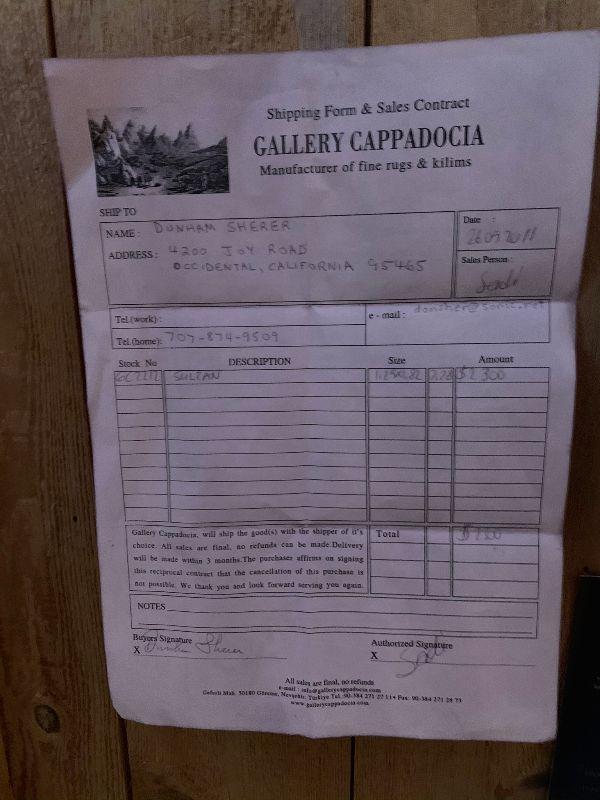 Shipping Form & Sales Contract
GALLERY CAPPADOCIA
Manufacturer of fine rugs & kilims
SHIP TO
NAME : DUNHAM SHERER
Date :
26 09 2011
ADDRESS : 4200 JOY ROAD
OCCIDENTAL, CALIFORNIA 95465
Sales Person :
Tel.(work) :
e - mail :
Tel.(home): 707-874-9509
Stock No DESCRIPTION Size Amount
SULTAN $2 300
Total
Gallery Cappadocia, will ship the good(s) with the shipper of it's
choice. All sales are final, no refunds can be made.Delivery
will be made within 3 months.The purchases affirms on signing
this reciprocal contract that the cancellation of this purchase is
not possible. We thank you and look forward serving you again.
NOTES
Buyers Signature
Authorized Signature
X Dunham Sherer
X
All sales are final, no refunds
e-mail : info@gallerycappadocia.com
Gaferli Mah. 50180 Göreme, Nevşehir. Türkiye Tel.:90-384 271 27 11• Fax: 90-384 271 28 73
www.gallerycappadocia.com